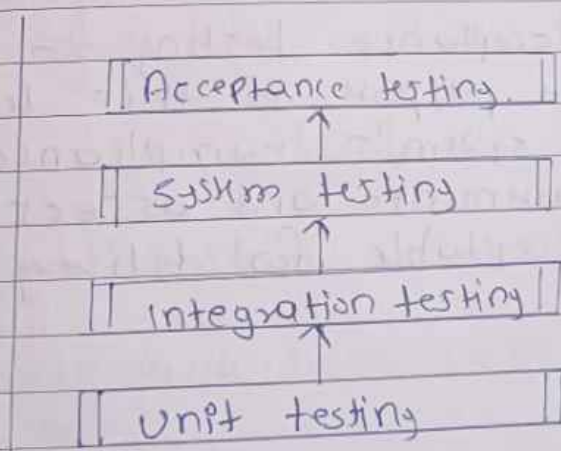 Acceptance testing.
System testing
Integration testing
Unit testing